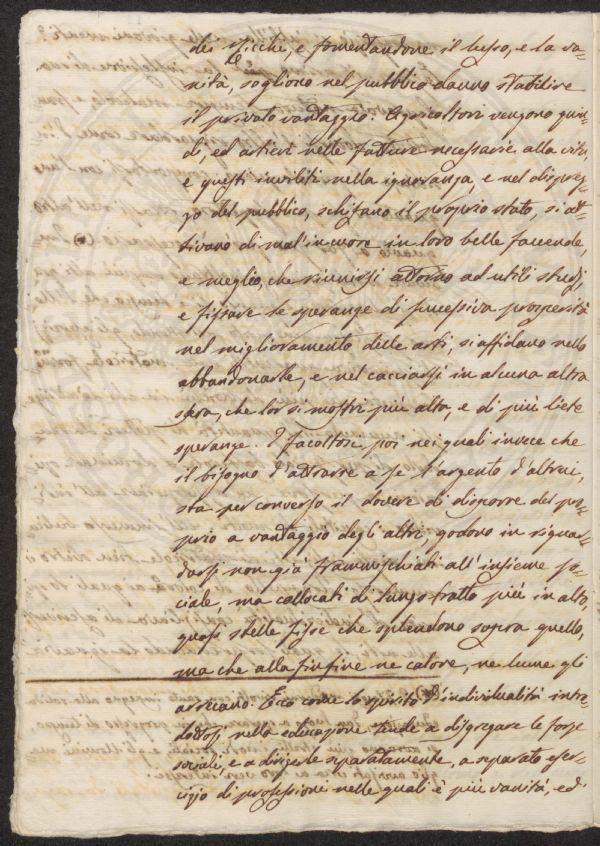 dei Ricchi, e fomentandone il lusso, e la va-
nità, sogliono nel pubblico danno stabilire
il privato vantaggio. Agricoltori vengono quin-
di, ed artieri nelle fatture necessarie alla vita
e questi inviliti nella ignoranza, e nel dispreg-
zo del pubblico, schifano il proprio stato, si at-
tivano di mal'in cuore in loro belle faccende,
e meglio, che riunirsi attorno ad utili studj,
e fissare le speranze di successiva prosperità
nel miglioramento delle arti, si affidano nello
abbandonarle, e nel cacciarsi in alcuna altra
sfera, che lor si mostri più alta, e di più liete
speranze. I facoltosi poi nei quali invece che
il bisogno d'attrarre a se l'argento d'altrui,
sta per converso il dovere di disporre del pro-
prio a vantaggio degli altri, godono in riguar-
darsi non già frammischiati all'insieme so-
ciale, ma collocati di lungo tratto più in alto,
quasi stelle fisse che splendono sopra quello,
ma che alla finfine ne calore, ne lume gli
arrecano. Ecco come lo spirito d'individualità intro-
dottosi nella educazione tende a disgregare le forze
sociali, e a dirigerle separatamente, a separato eser-
cizio di professioni nelle quali è più vanità, ed